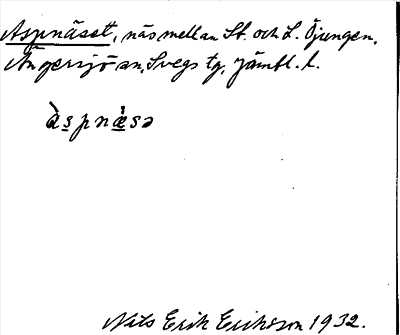 Aspnäset, näs mellan St. och L. Öjungen.
Ängersjö an, Svegs tg, Jämtl. l.
àspnæ̀sə
Nils Erik Eriksson 1932.